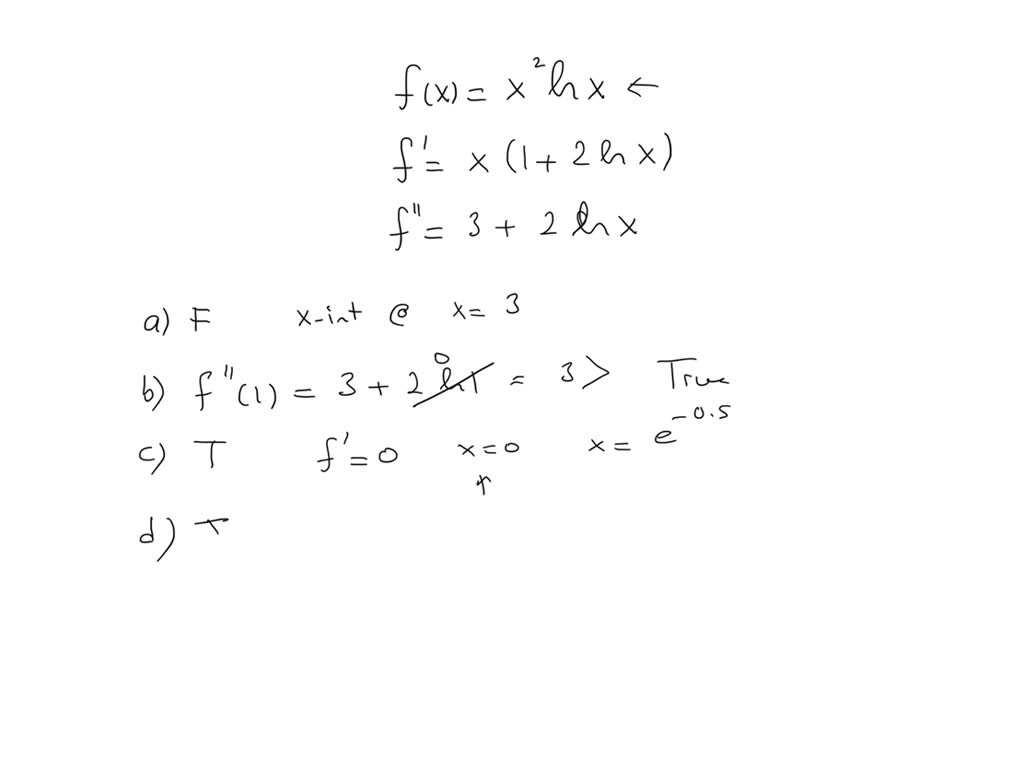 f(x) = x² ln x ←
f' = x (1 + 2 ln x)
f'' = 3 + 2 ln x
a) F x-int @ x = 3
b) f''(1) = 3 + 2 ln 1 0 = 3 > True
c) T f' = 0 x = 0 x = e^-0.5
↑
d) T